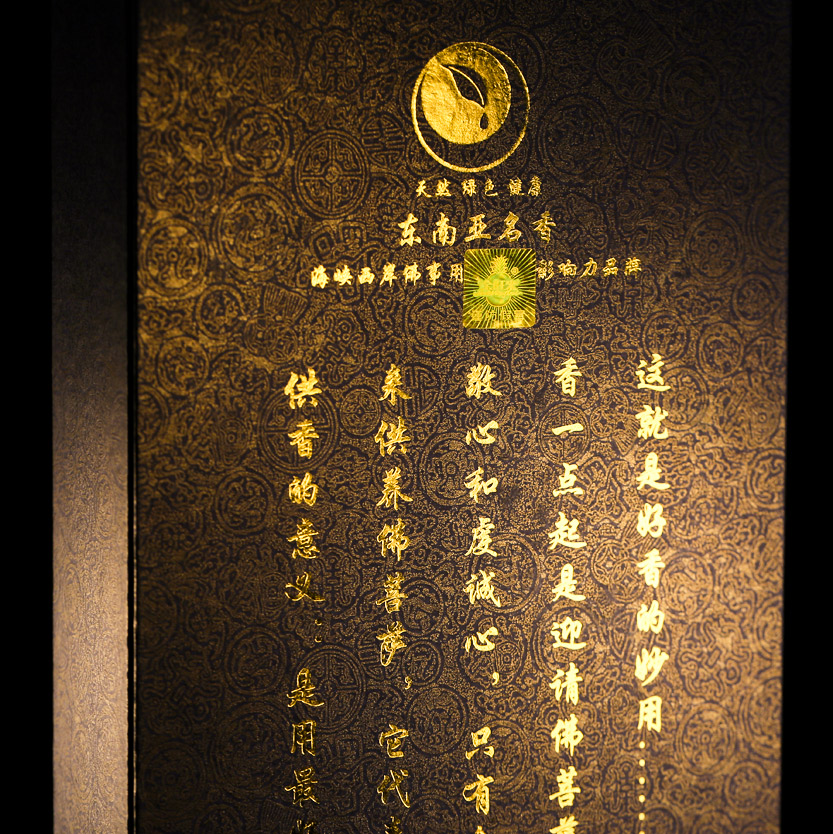 天然 绿色 健康
东南亚名香
海峡西岸佛事用 影响力品牌
供香的意义：是用最
来供养佛菩萨，它代
敬心和虔诚心，只有
香一点起是迎请佛菩
这就是好香的妙用……